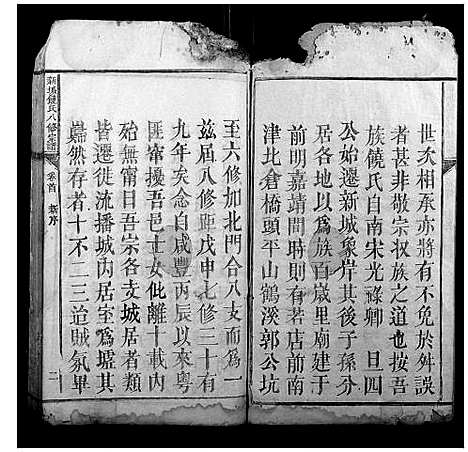 世次相承亦將有不免於舛誤
者甚非敬宗収族之道也按吾
族饒氏自南宋光祿卿旦四
公始遷新城象岸其後子孫分
居各地以爲族百歲里廟建于
前明嘉靖間時則有若店前南
津北倉橋頭平山鶴溪郭公坑
至六修加北門合八支而爲一
茲屆八修距戊申七修三十有
九年矣念自咸豐丙辰以來粵
匪竄擾吾邑士女仳離十載內
殆無甯日吾宗各支城居者類
皆遷徙流播城內居室爲墟其
巋然存者十不二三迨賊氛畢
饒氏八修宗譜
卷首
新序
二